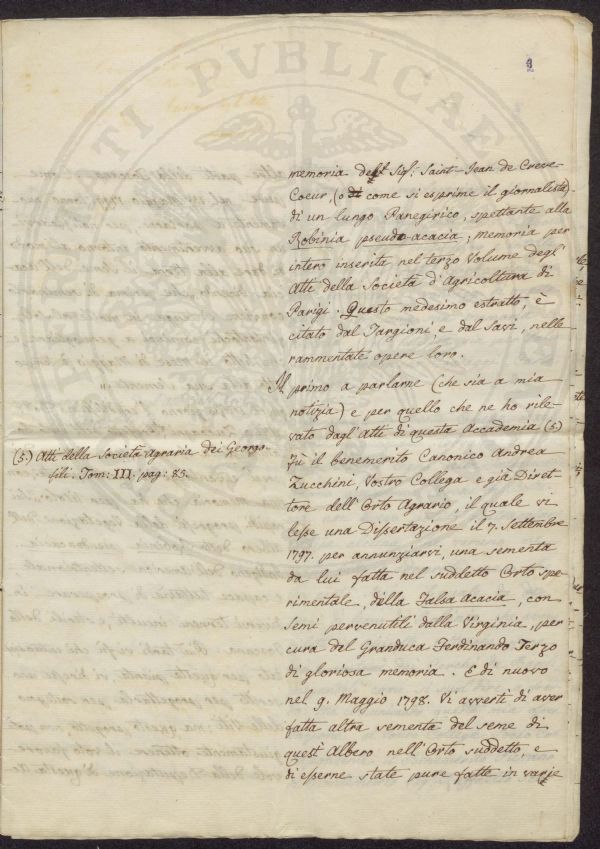 memoria del Sig: Saint-Jean de Creve-
Coeur, (o come si esprime il giornalista)
di un lungo Panegirico, spettante alla
Robinia pseudo-acacia; memoria per
intero inserita nel terzo Volume degl'
Atti della Società d'Agricoltura di
Parigi. Questo medesimo estratto, è
citato dal Targioni, e dal Savi, nelle
rammentate opere loro.
Il primo a parlarne (che sia a mia
notizia) e per quello che ne ho rile-
vato dagl'Atti di questa Accademia (5)
Fù il benemerito Canonico Andrea
Zucchini, Vostro Collega e già Diret-
tore dell'Orto Agrario, il quale vi
lesse una Dissertazione il 7. Settembre
1797. per annunziarvi, una sementa
da lui fatta nel suddetto Orto spe-
rimentale, della Falsa Acacia, con
semi pervenutili dalla Virginia, per
cura del Granduca Ferdinando Terzo
di gloriosa memoria. E di nuovo
nel 9. Maggio 1798. Vi avvertì di aver
fatta altra sementa del seme di
quest'Albero nell'Orto suddetto, e
di esserne state pure fatte in varje
(5.) Atti della Società agraria dei Georgo-
fili. Tom: III. pag: 85.
PVBLICAE